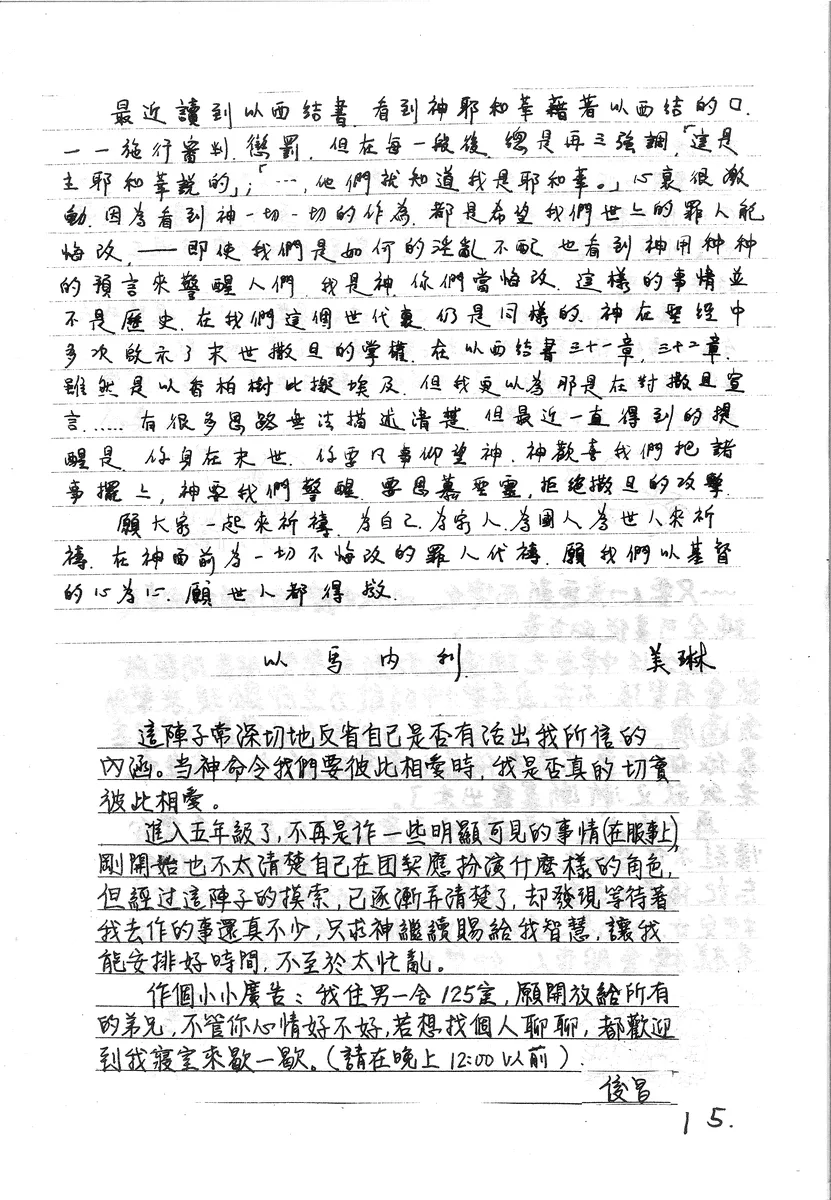 最近讀到以西結書.看到神耶和華藉著以西結的口.
一一施行審判.懲罰.但在每一段後.總是再三強調,「這是
主耶和華說的」;「…,他們就知道我是耶和華。」心裏很激
動.因為看到神一切一切的作為.都是希望我們世上的罪人能
悔改.——即使我們是如何的淫亂不配.也看到神用种种
的預言來警醒人們.我是神.你們當悔改.這樣的事情並
不是歷史.在我們這個世代裏.仍是同樣的.神在聖經中
多次啟示了末世撒旦的掌權.在以西結書三十一章,三十二章.
雖然是以香柏樹比擬埃及.但我更以為那是在對撒旦宣
言.....有很多思路無法描述清楚.但最近一直得到的提
醒是.你身在末世.你要凡事仰望神.神歡喜我們把諸
事擺上,神要我們警醒.要思慕聖靈,拒絕撒旦的攻擊.
願大家一起來祈禱.為自己.為家人.為國人.為世人來祈
禱.在神面前為一切不悔改的罪人代禱.願我們以基督
的心為心.願世人都得救.
以馬內利. 美琳
這陣子常深切地反省自己是否有活出我所信的
內涵。当神命令我們要彼此相愛時,我是否真的切實
彼此相愛。
進入五年級了,不再是作一些明顯可見的事情(在服事上),
剛開始也不太清楚自己在团契應扮演什麼樣的角色,
但經过這陣子的摸索,已逐漸弄清楚了,却發現等待著
我去作的事還真不少,只求神繼續賜給我智慧,讓我
能安排好時間,不至於太忙亂。
作個小小廣告:我住男一舍125室,願開放給所有
的弟兄,不管你心情好不好,若想找個人聊聊,都歡迎
到我寢室來歇一歇。(請在晚上12:00以前).
俊昌
15.